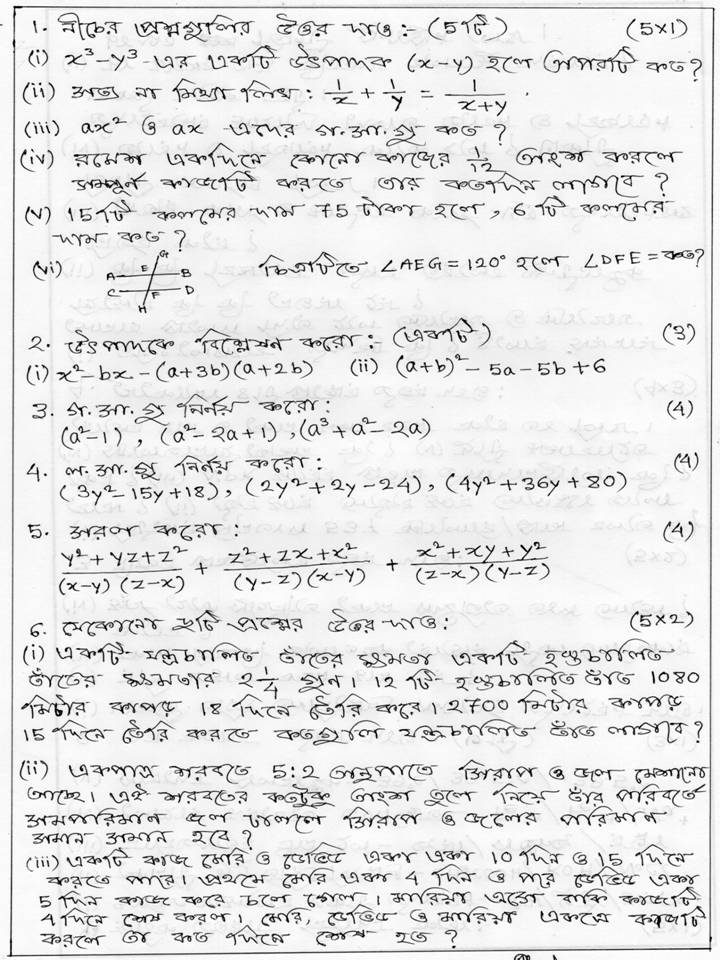 1. নীচের প্রশ্নগুলির উত্তর দাও :- (5টি) (5×1)
(i) x³-y³-এর একটি উৎপাদক (x-y) হলে অপরটি কত?
(ii) সত্য না মিথ্যা লিখ : 1/x + 1/y = 1/(x+y) .
(iii) ax² ও ax -এদের গ.সা.গু কত ?
(iv) রমেশ একদিনে কোনো কাজের 1/12 অংশ করলে
সম্পূর্ণ কাজটি করতে তার কতদিন লাগবে ?
(v) 15টি কলমের দাম 75 টাকা হলে, 6টি কলমের
দাম কত ?
(vi) A B C D E F G H চিত্রটিতে ∠AEG = 120° হলে ∠DFE = কত?
2. উৎপাদকে বিশ্লেষণ করো :- (একটি) (3)
(i) x²-bx-(a+3b)(a+2b) (ii) (a+b)²-5a-5b+6
3. গ.সা.গু নির্ণয় করো : (4)
(a²-1), (a²-2a+1), (a³+a²-2a)
4. ল.সা.গু নির্ণয় করো : (4)
(3y²-15y+18), (2y²+2y-24), (4y²+36y+80)
5. সরল করো : (4)
(y²+yz+z²)/((x-y)(z-x)) + (z²+zx+x²)/((y-z)(x-y)) + (x²+xy+y²)/((z-x)(y-z))
6. যেকোনো দুটি প্রশ্নের উত্তর দাও : (5×2)
(i) একটি যন্ত্রচালিত তাঁতের ক্ষমতা একটি হস্তচালিত
তাঁতের ক্ষমতার 2 1/4 গুন। 12 টি হস্তচালিত তাঁত 1080
মিটার কাপড় 18 দিনে তৈরি করে। 2700 মিটার কাপড়
15 দিনে তৈরি করতে কতগুলি যন্ত্রচালিত তাঁত লাগবে?
(ii) একপাত্র শরবতে 5:2 অনুপাতে সিরাপ ও জল মেশানো
আছে। এই শরবতের কতটুকু অংশ তুলে নিয়ে তার পরিবর্তে
সমপরিমান জল ঢাললে সিরাপ ও জলের পরিমান
সমান সমান হবে ?
(iii) একটি কাজ মেরি ও ডেভিড একা একা 10 দিন ও 15 দিনে
করতে পারে। প্রথমে মেরি একা 4 দিন ও পরে ডেভিড একা
5 দিন কাজ করে চলে গেল। মারিয়া এসে বাকি কাজটি
4 দিনে শেষ করল। মেরি, ডেভিড ও মারিয়া একত্রে কাজটি
করলে তা কত দিনে শেষ হত ?